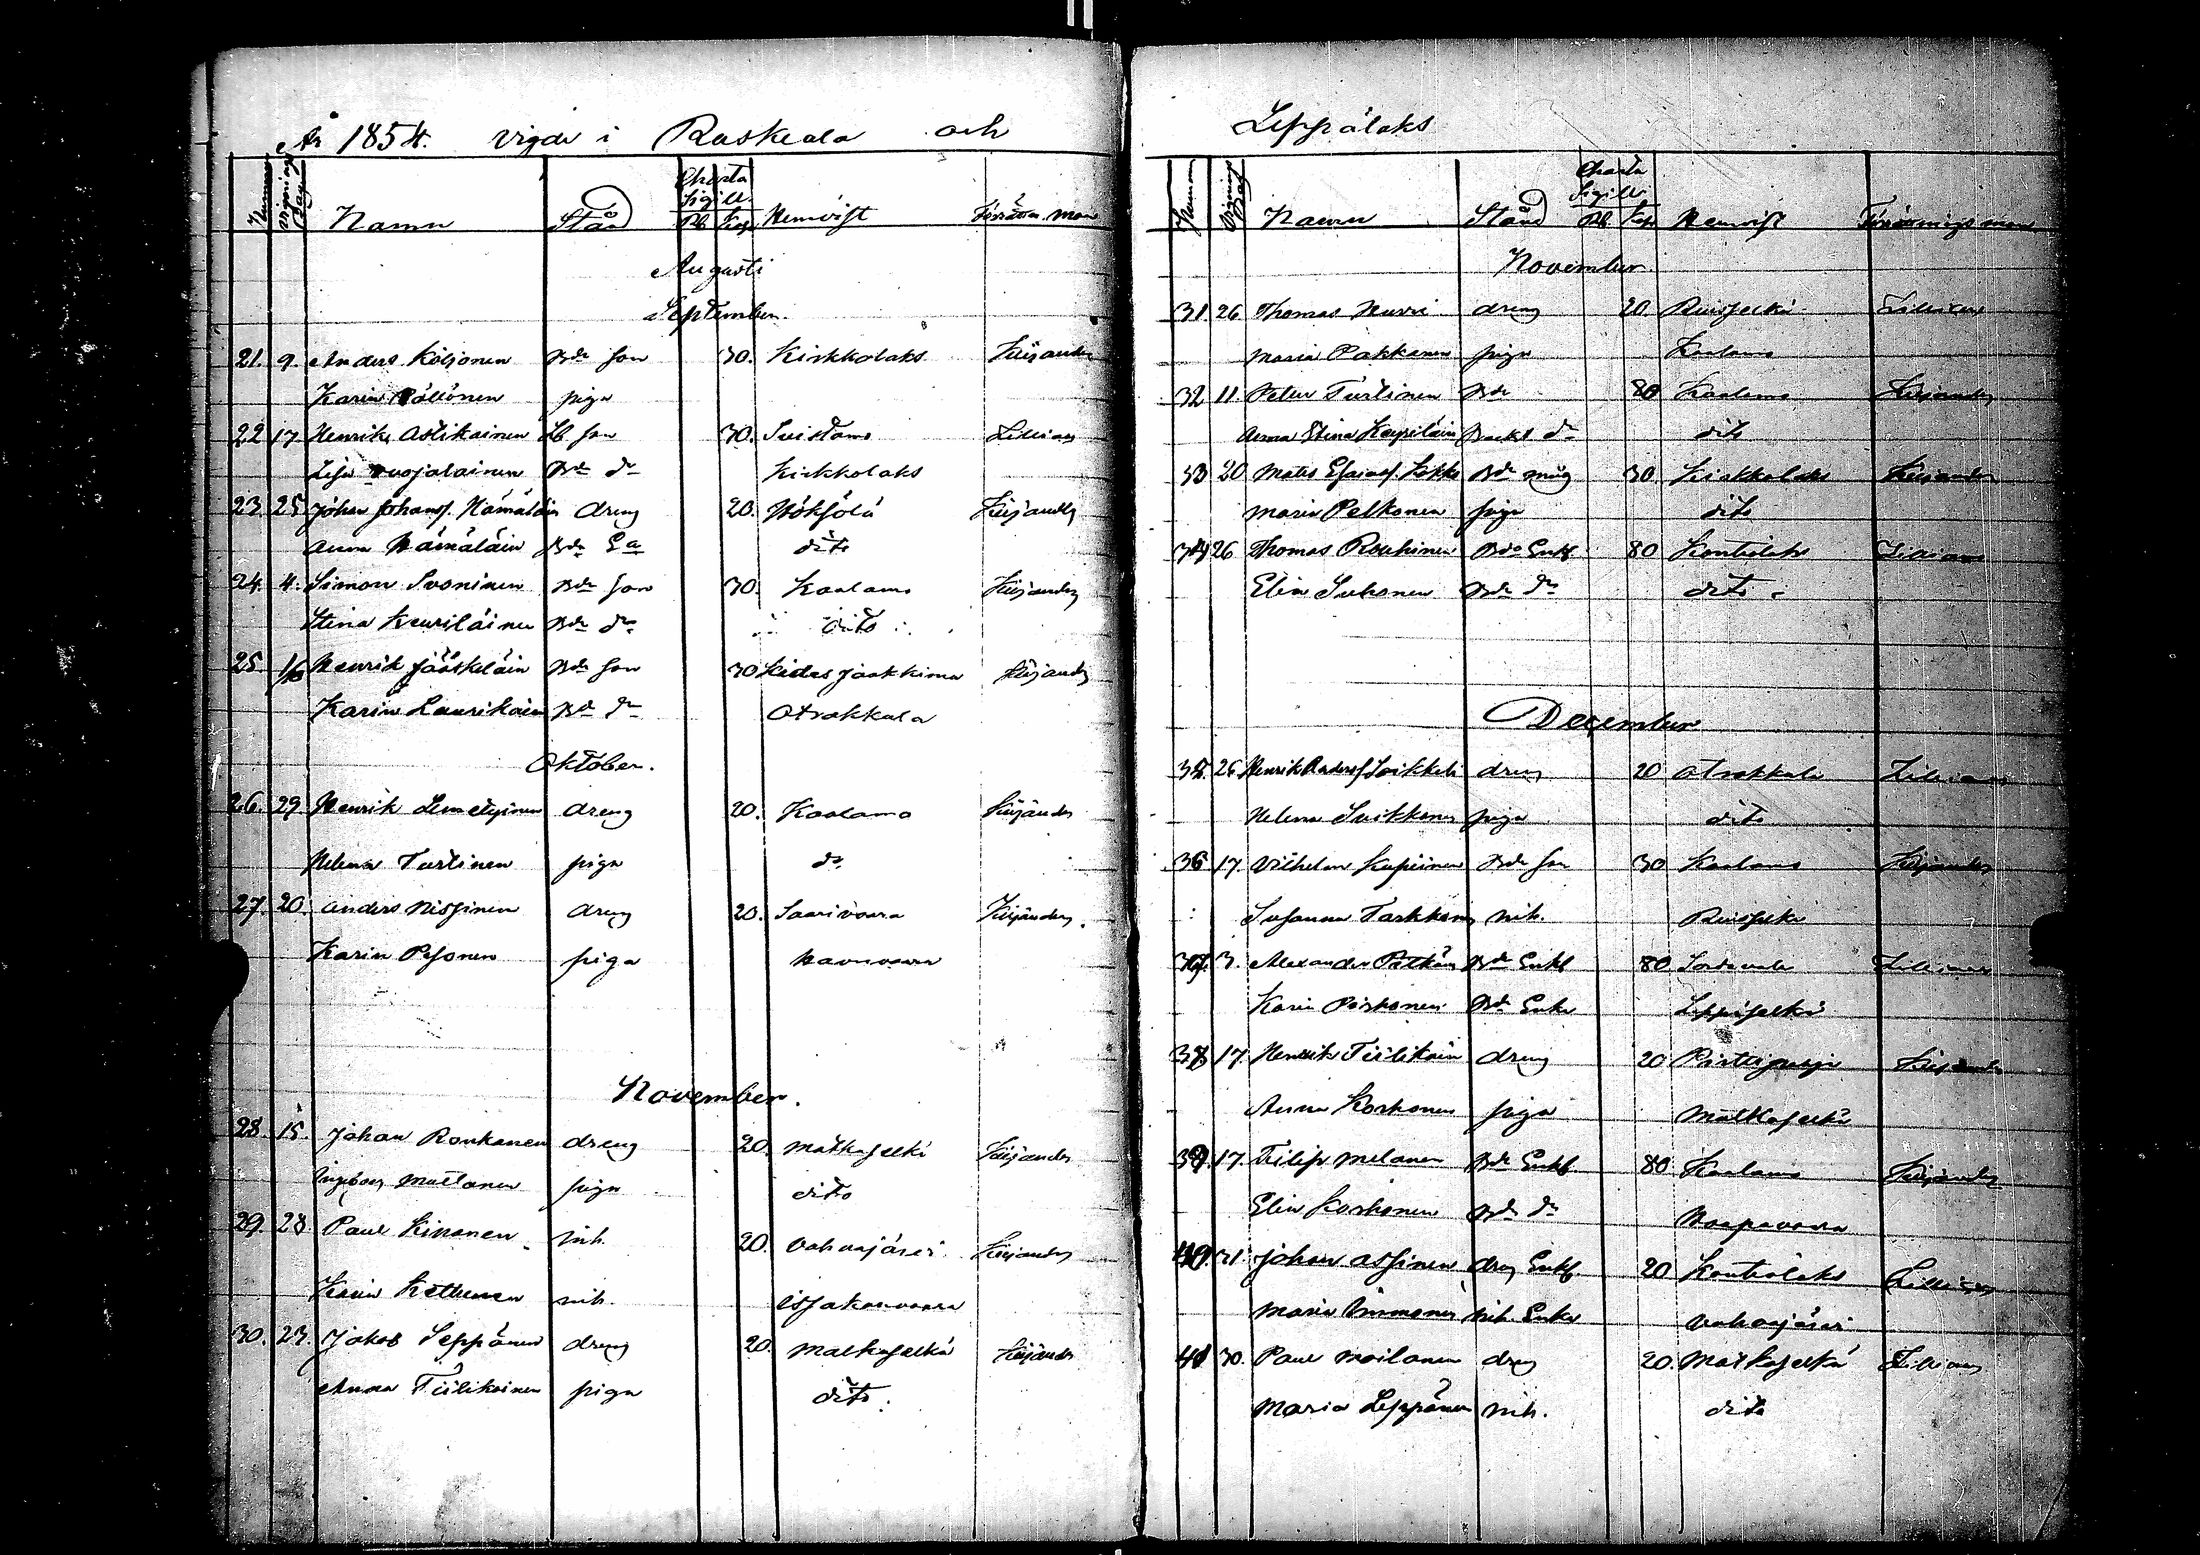 År 1854. Vigde i Ruskeala och
Nummer Vignings Dag Namn Stånd Charta Sigill. Rb. Kop. Hemvist Förrättn. man
Augusti
September.
21. 9. Anders Köljonen Bde son 30. Kirkkolaks Kiljander
Karin Pöllönen piga
22 17. Henrik Astikainen Lb son 30. Suistamo Lillius
Lisa Kirkkolaks
Bde dr
23. 25 Johan Johansf. Hämäläin dreng 20. Höksölä Kiljander
Anna Hämäläin Bde Ea dito
24. 4. Simon Svoninen Bde son 30. Kaalamo Kiljander
Stina Keuriläinen Bde dr dito
25. 16 Henrik Jääskeläin Bde son 30 Kides Jaakkima Kiljander
Karin Laurikain Bd dr Otrakkala
Oktober.
26. 29. Henrik Lemetyinen dreng 20. Kaalamo Kiljander
Helena Turtinen piga do
27. 20. Anders Nissinen dreng 20. Saarivaara Kiljander.
Karin Pesonen piga Havuvaara
November.
28. 15. Johan Ronkanen dreng 20. Matkaselkä Kiljander
Ingeborg Moilanen piga dito
29. 28. Paul Kinonen inh. 20. Vahvajärvi Kiljander
Karin Kettunen inh.
30. 23. Jakob Seppänen dreng 20. Matkaselkä Kiljander
Anna Tiilikainen piga dito.
Leppälaks
Nummer Vignings Dag Namn Stånd Charta Sigill. Rb. Kop Hemvist Förrättnings man
November.
31. 26 Thomas Hurri dreng 20 Ruisselkä Lillius
Maria Pakkanen piga Kaalamo
32 11. Peter Turtinen Bde 80 Kaalamo Kiljander
Anna Stina Keyriläin dr dito
33 20 Mats Esaiasf. Kokko Bde måg 30 Kirkkolaks Kiljander
Maria Pelkonen piga dito
34 26 Thomas Rouhinen Bde Enkl 80 Kontiolaks Lillius
Elin Suhonen Bde dr dito
December
35. 26 Henrik Andersf Loikkali dreng 20 Otrakkala Lillius
Helena Suikkonen piga dito
36 17. Vilhelm Kupiainen Bde son 30 Kaalamo Kiljander
Susanna Tarkkonen inh. Ruisselkä
37. 3. Alexander Bde Enkl 80 Sordavala Lillius
Karin Bde Enka Leppäselkä
38 17. Henrik Tiilikain dreng 20 Kiljander
Anna Korhonen piga Matkaselkä
39. 17. Filip Melanen Bde Enkl 80 Kaalamo Kiljander
Elin Korhonen Bde dr Haapavaara
40. 21. Johan Assinen dreng Enkl. 20 Kontiolaks Lillius
Maria Immonen inh. Enka Vahvajärvi
41 30. Paul Moilanen dreng 20. Matkaselkä Lillius
Maria Leppänen inh. dito